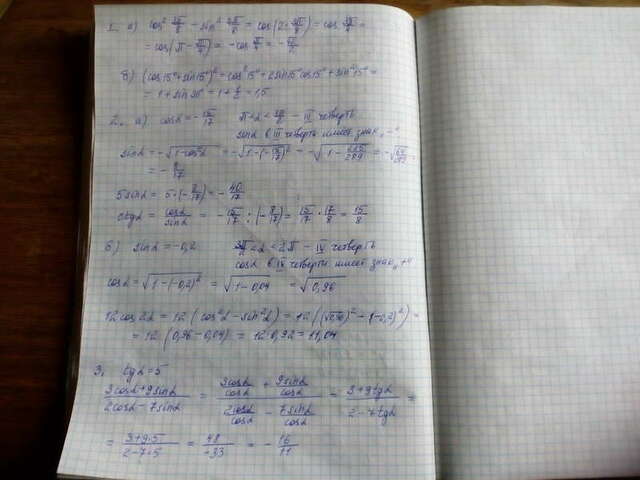 1. а) cos² 3π/8 − sin² 3π/8 = cos(2·3π/8) = cos 3π/4 =
= cos(π − π/4) = −cos π/4 = −√2/2
б) (cos15°+sin15°)² = cos²15°+2sin15°cos15°+sin²15° =
= 1+sin30° = 1+1/2 = 1,5
2. а) cosα = −15/17 π<α<3π/2 − III четверть
sinα в III четверти имеет знак „−“
sinα = −√(1−cos²α) = −√(1−(−15/17)²) = −√(1−225/289) = −√(64/289) =
= −8/17
5sinα = 5·(−8/17) = −40/17
ctgα = cosα/sinα = −15/17 : (−8/17) = 15/17 · 17/8 = 15/8
б) sinα = −0,2 3π/2<α<2π − IV четверть
cosα в IV четверти имеет знак „+“
cosα = √(1−(−0,2)²) = √(1−0,04) = √0,96
12cos2α = 12(cos²α−sin²α) = 12((√0,96)²−(−0,2)²) =
= 12(0,96−0,04) = 12·0,92 = 11,04
3. tgα = 5
(3cosα+9sinα)/(2cosα−7sinα) = (3cosα/cosα + 9sinα/cosα)/(2cosα/cosα − 7sinα/cosα) = (3+9tgα)/(2−7tgα) =
= (3+9·5)/(2−7·5) = 48/−33 = −16/11